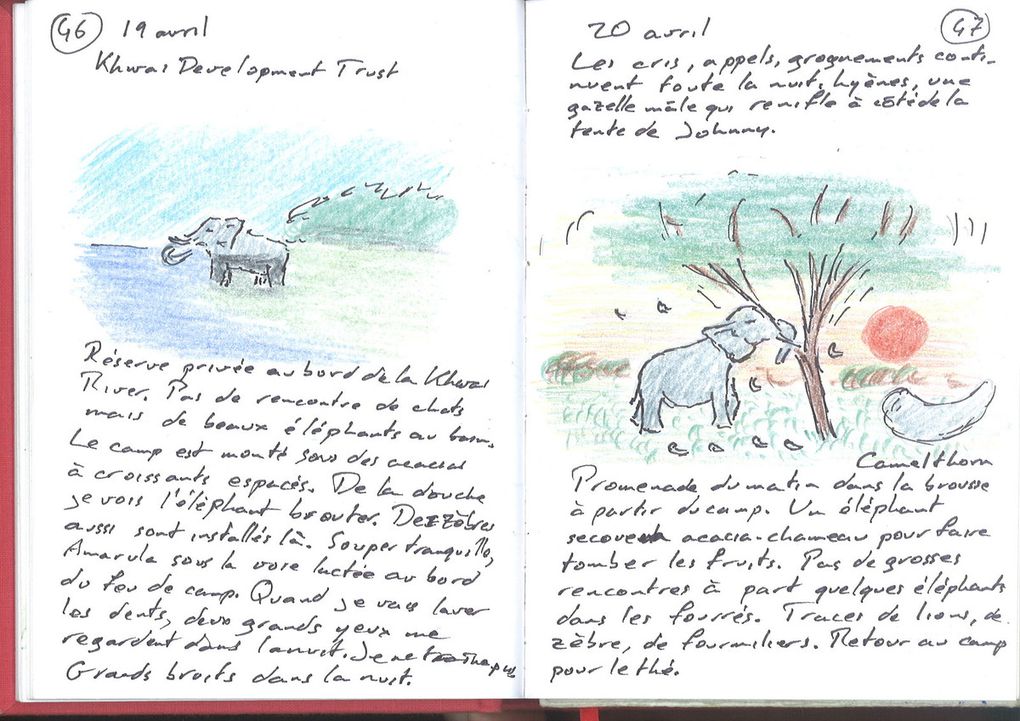 46 19 avril
Khwai Development Trust
Réserve privée au bord de la Khwai
River. Pas de rencontre de chats
mais de beaux éléphants au bain.
Le camp est monté sous des acacias
à croissants espacés. De la douche
je vois l'éléphant brouter. Des zèbres
aussi sont installés là. Souper tranquille,
Amarula sous la voie lactée au bord
du feu de camp. Quand je vais laver
les dents, deux grands yeux me
regardent dans la nuit. Je ne
Grands bruits dans la nuit.
20 avril 47
Les cris, appels, grognements conti-
nuent toute la nuit, hyènes, une
gazelle mâle qui renifle à côté de la
tente de Johnny.
Camelthorn
Promenade du matin dans la brousse
à partir du camp. Un éléphant
secoue un acacia-chameau pour faire
tomber les fruits. Pas de grosses
rencontres à part quelques éléphants
dans les fourrés. Traces de lions, de
zèbre, de fourmiliers. Retour au camp
pour le thé.